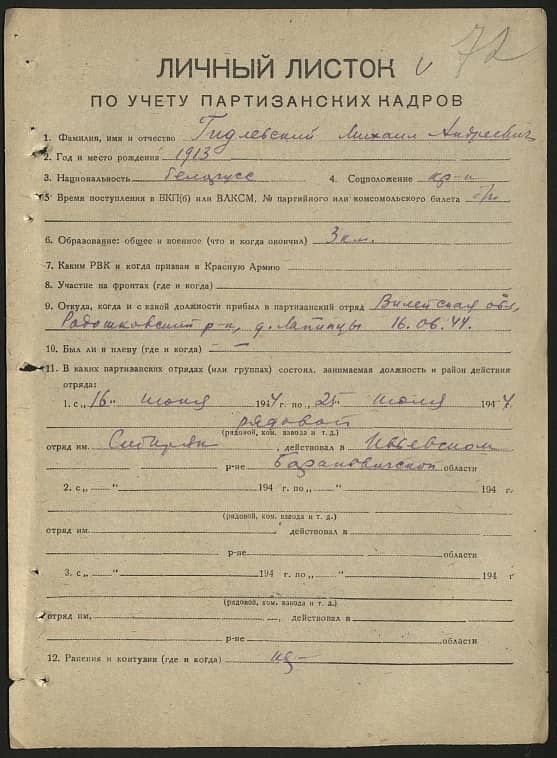 72
ЛИЧНЫЙ ЛИСТОК
ПО УЧЕТУ ПАРТИЗАНСКИХ КАДРОВ
1. Фамилия, имя и отчество Гидлевский Михаил Андреевич
2. Год и место рождения 1913
3. Национальность белорусс 4. Соцположение кр-н
5 Время поступления в ВКП(б) или ВЛКСМ, № партийного или комсомольского билета б/п
6. Образование: общее и военное (что и когда окончил) 3 кл.
7. Каким РВК и когда призван в Красную Армию
8. Участие на фронтах (где и когда)
9. Откуда, когда и с какой должности прибыл в партизанский отряд Вилейская обл,
Радошковский р-н, д. 16.06.44.
10. Был ли в плену (где и когда) —
11. В каких партизанских отрядах (или группах) состоял, занимаемая должность и район действия
отряда:
1. с „16" июня 1944 г. по „ " июля 1944 г.
рядовой
(рядовой, ком. взвода и т. д.)
отряд им. Сибиряк, действовал в Ивьевском
р-не Барановичской области
2. с „ " 194 г. по „ " 194 г.
(рядовой, ком. взвода и т. д.)
отряд им. , действовал в
р-не области
3. с „ " 194 г. по „ " 194 г
(рядовой, ком. взвода и т. д.)
отряд им. , действовал в
р-не области
12. Ранения и контузии (где и когда)